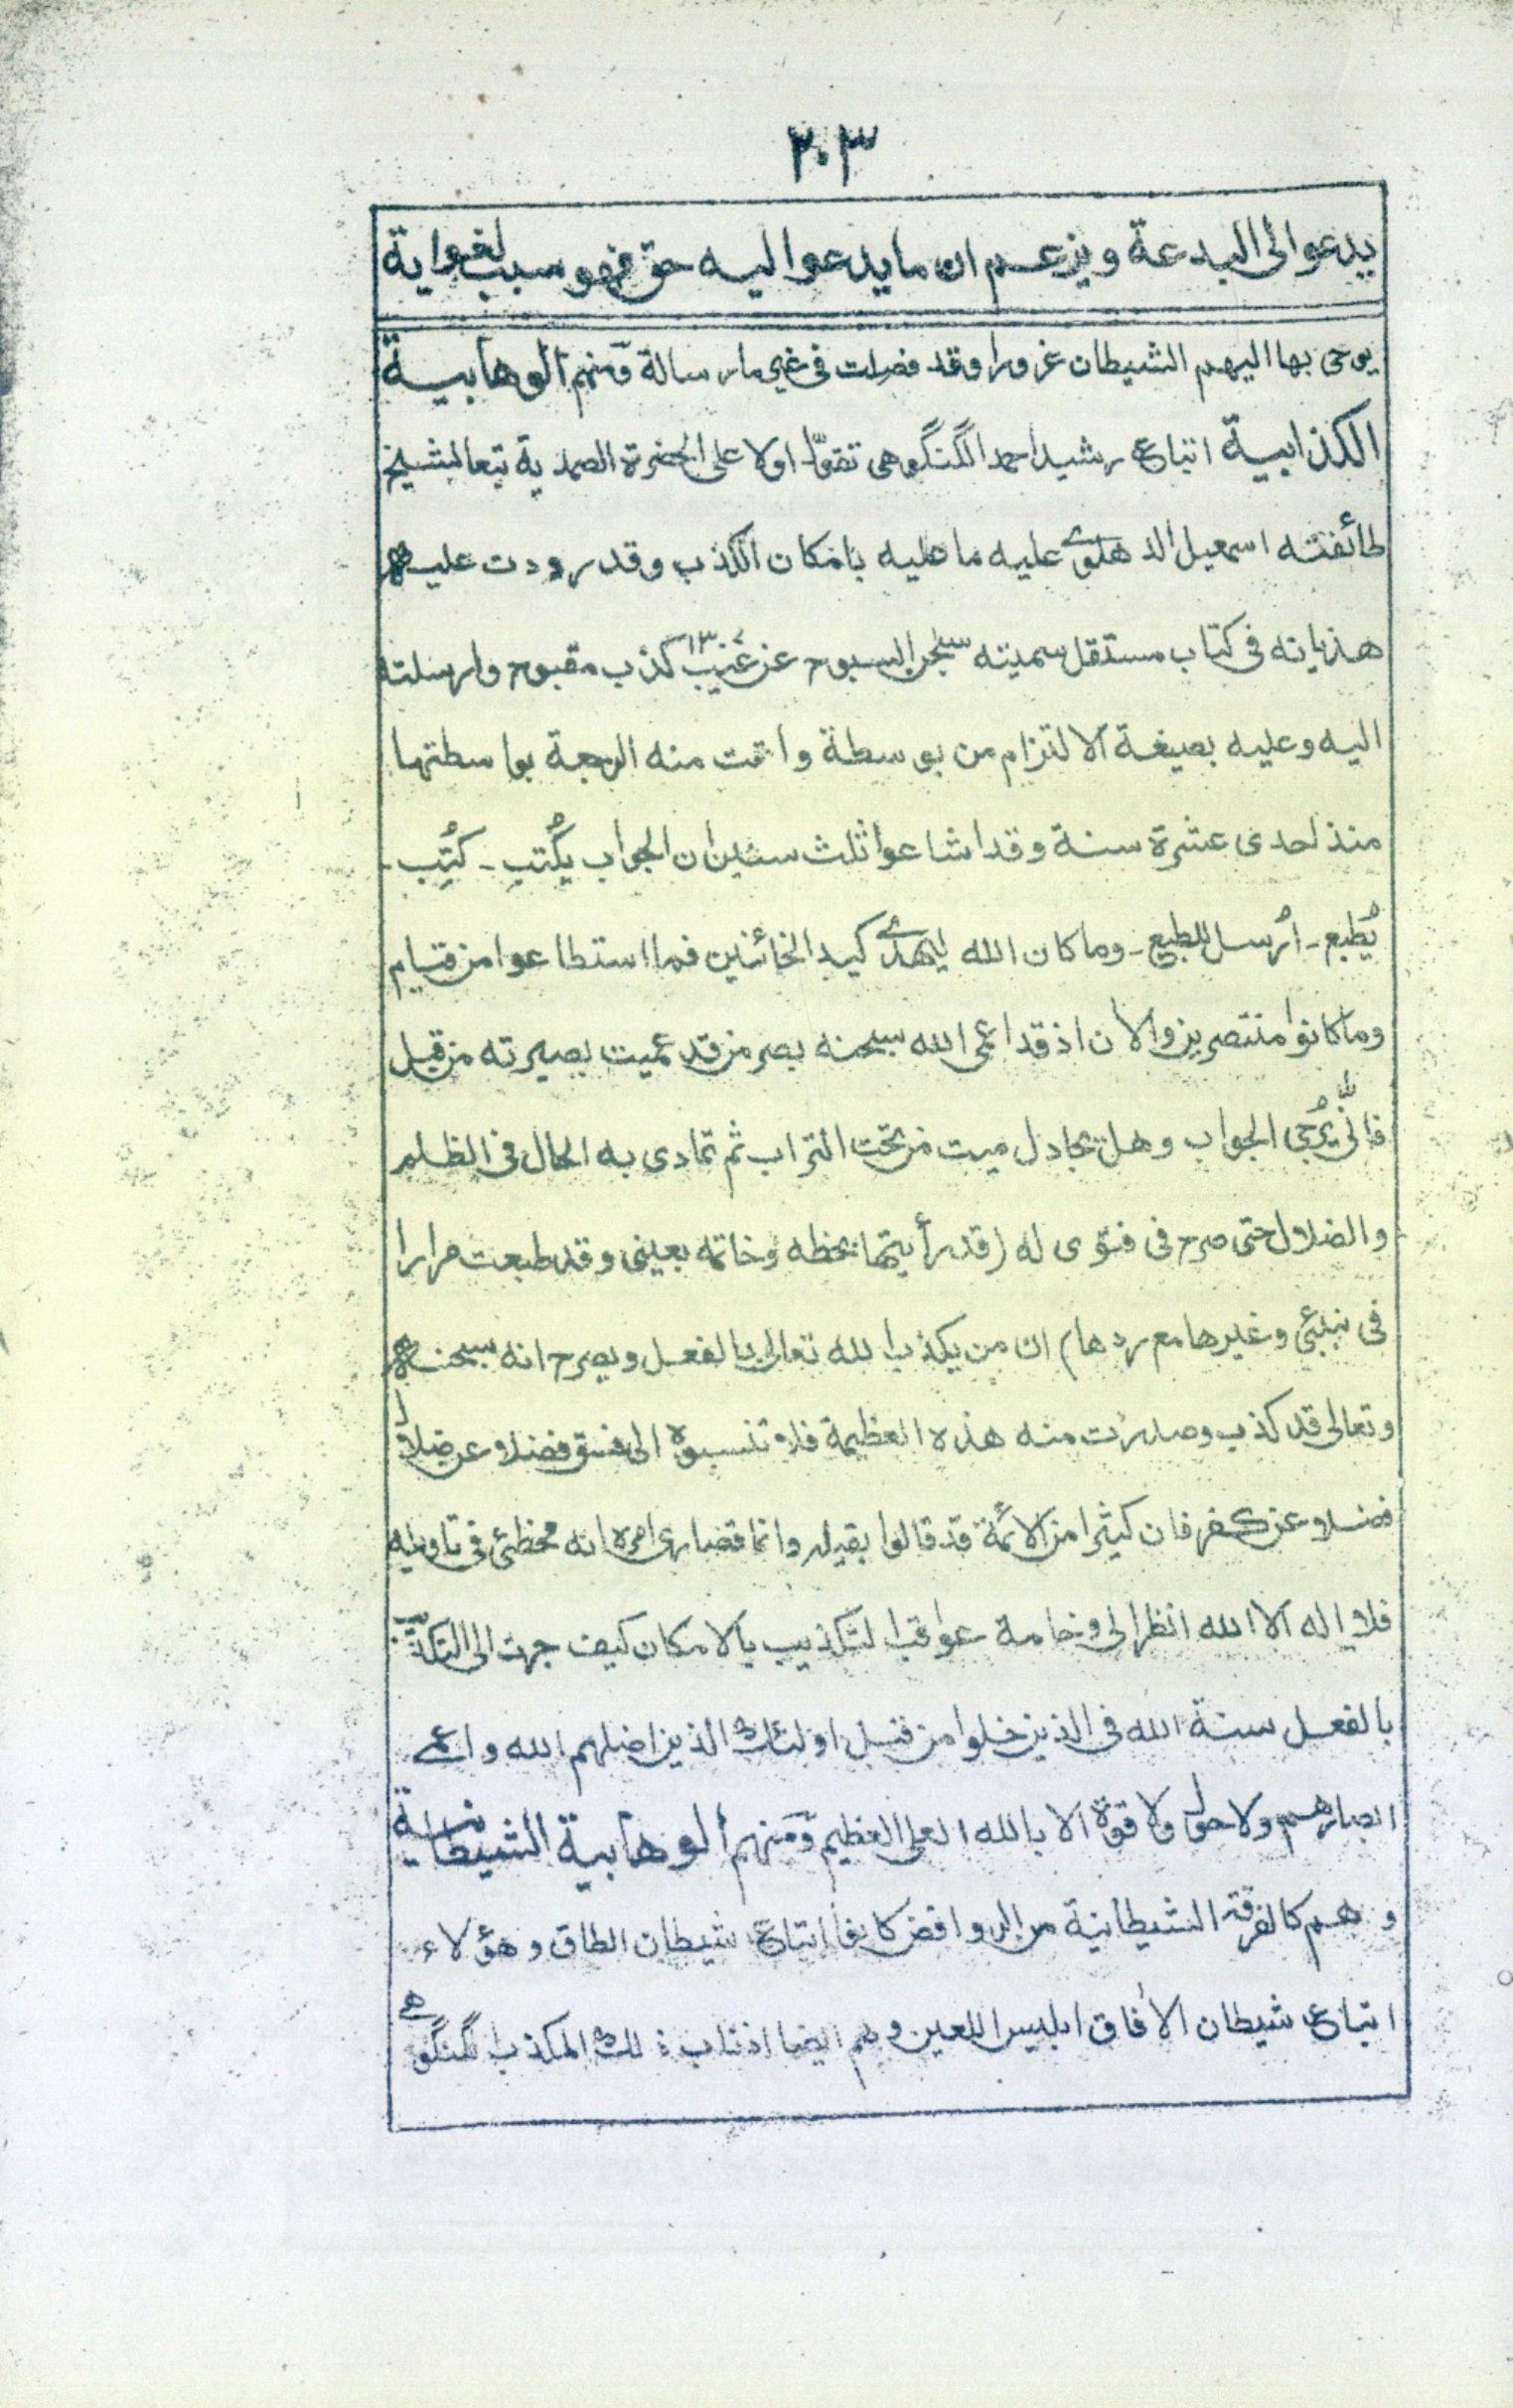 ٢٠٣
يدعوا الى البدعة ويزعم ان ما يدعوا اليه حق فهو سبب لغواية
يوحى بها اليهم الشيطان غرورا وقد فصلت فى غير ما رسالة ومنهم الوهابية
الكذابية اتباع رشيد احمد الگنگوهى تقوّل اولا على الحضرة الصمدية تبعا لشيخ
طائفته اسمعيل الدهلوى عليه ما عليه بامكان الكذب وقد رددت عليه
هذيانه فى كتاب مستقل سميته سبحن السبوح عن عيب كذب مقبوح وارسلته
١٣٠٧
اليه وعليه بصيغة الالتزام من بوسطة واتت منه الرجعة بواسطتها
منذ احدى عشرة سنة وقد اشاعوا ثلث سنين ان الجواب يُكتب - كُتِب -
يُطبع - اُرسل للطبع - وما كان الله ليهدى كيد الخائنين فما استطاعوا من قيام
وما كانوا منتصرين والآن اذ قد اعمى الله سبحنه بصر من قد عميت بصيرته من قبل
فانّى يُرجى الجواب وهل يجادل ميت من تحت التراب ثم تمادى به الحال فى الظلم
والضلال حتى صرح فى فتوى له (قد رأيتها بخطه وخاتمه بعينى وقد طبعت مرارا
فى بنبئى وغيرها مع ردها) ان من يكذب الله تعالى بالفعل ويصرح انه سبحنه
وتعالى قد كذب وصدرت منه هذه العظيمة فلا تنسبوه الى فسق فضلا عن ضلال
فضلا عن كفر فان كثيرا من الائمة قد قالوا بقيله وانما قصارى امره انه مخطئ فى تاويله
فلا اله الا الله انظر الى وخامة عواقب التكذيب بالامكان كيف جرت الى التكذيب
بالفعل سنة الله فى الذين خلوا من قبل اولئك الذين اضلهم الله واعمى
ابصارهم ولا حول ولا قوة الا بالله العلى العظيم ومنهم الوهابية الشيطانية
وهم كالفرقة الشيطانية من الروافض كانوا اتباع شيطان الطاق وهؤلاء
اتباع شيطان الآفاق ابليس اللعين وهم ايضا اذناب ذلك المكذب الگنگوهى